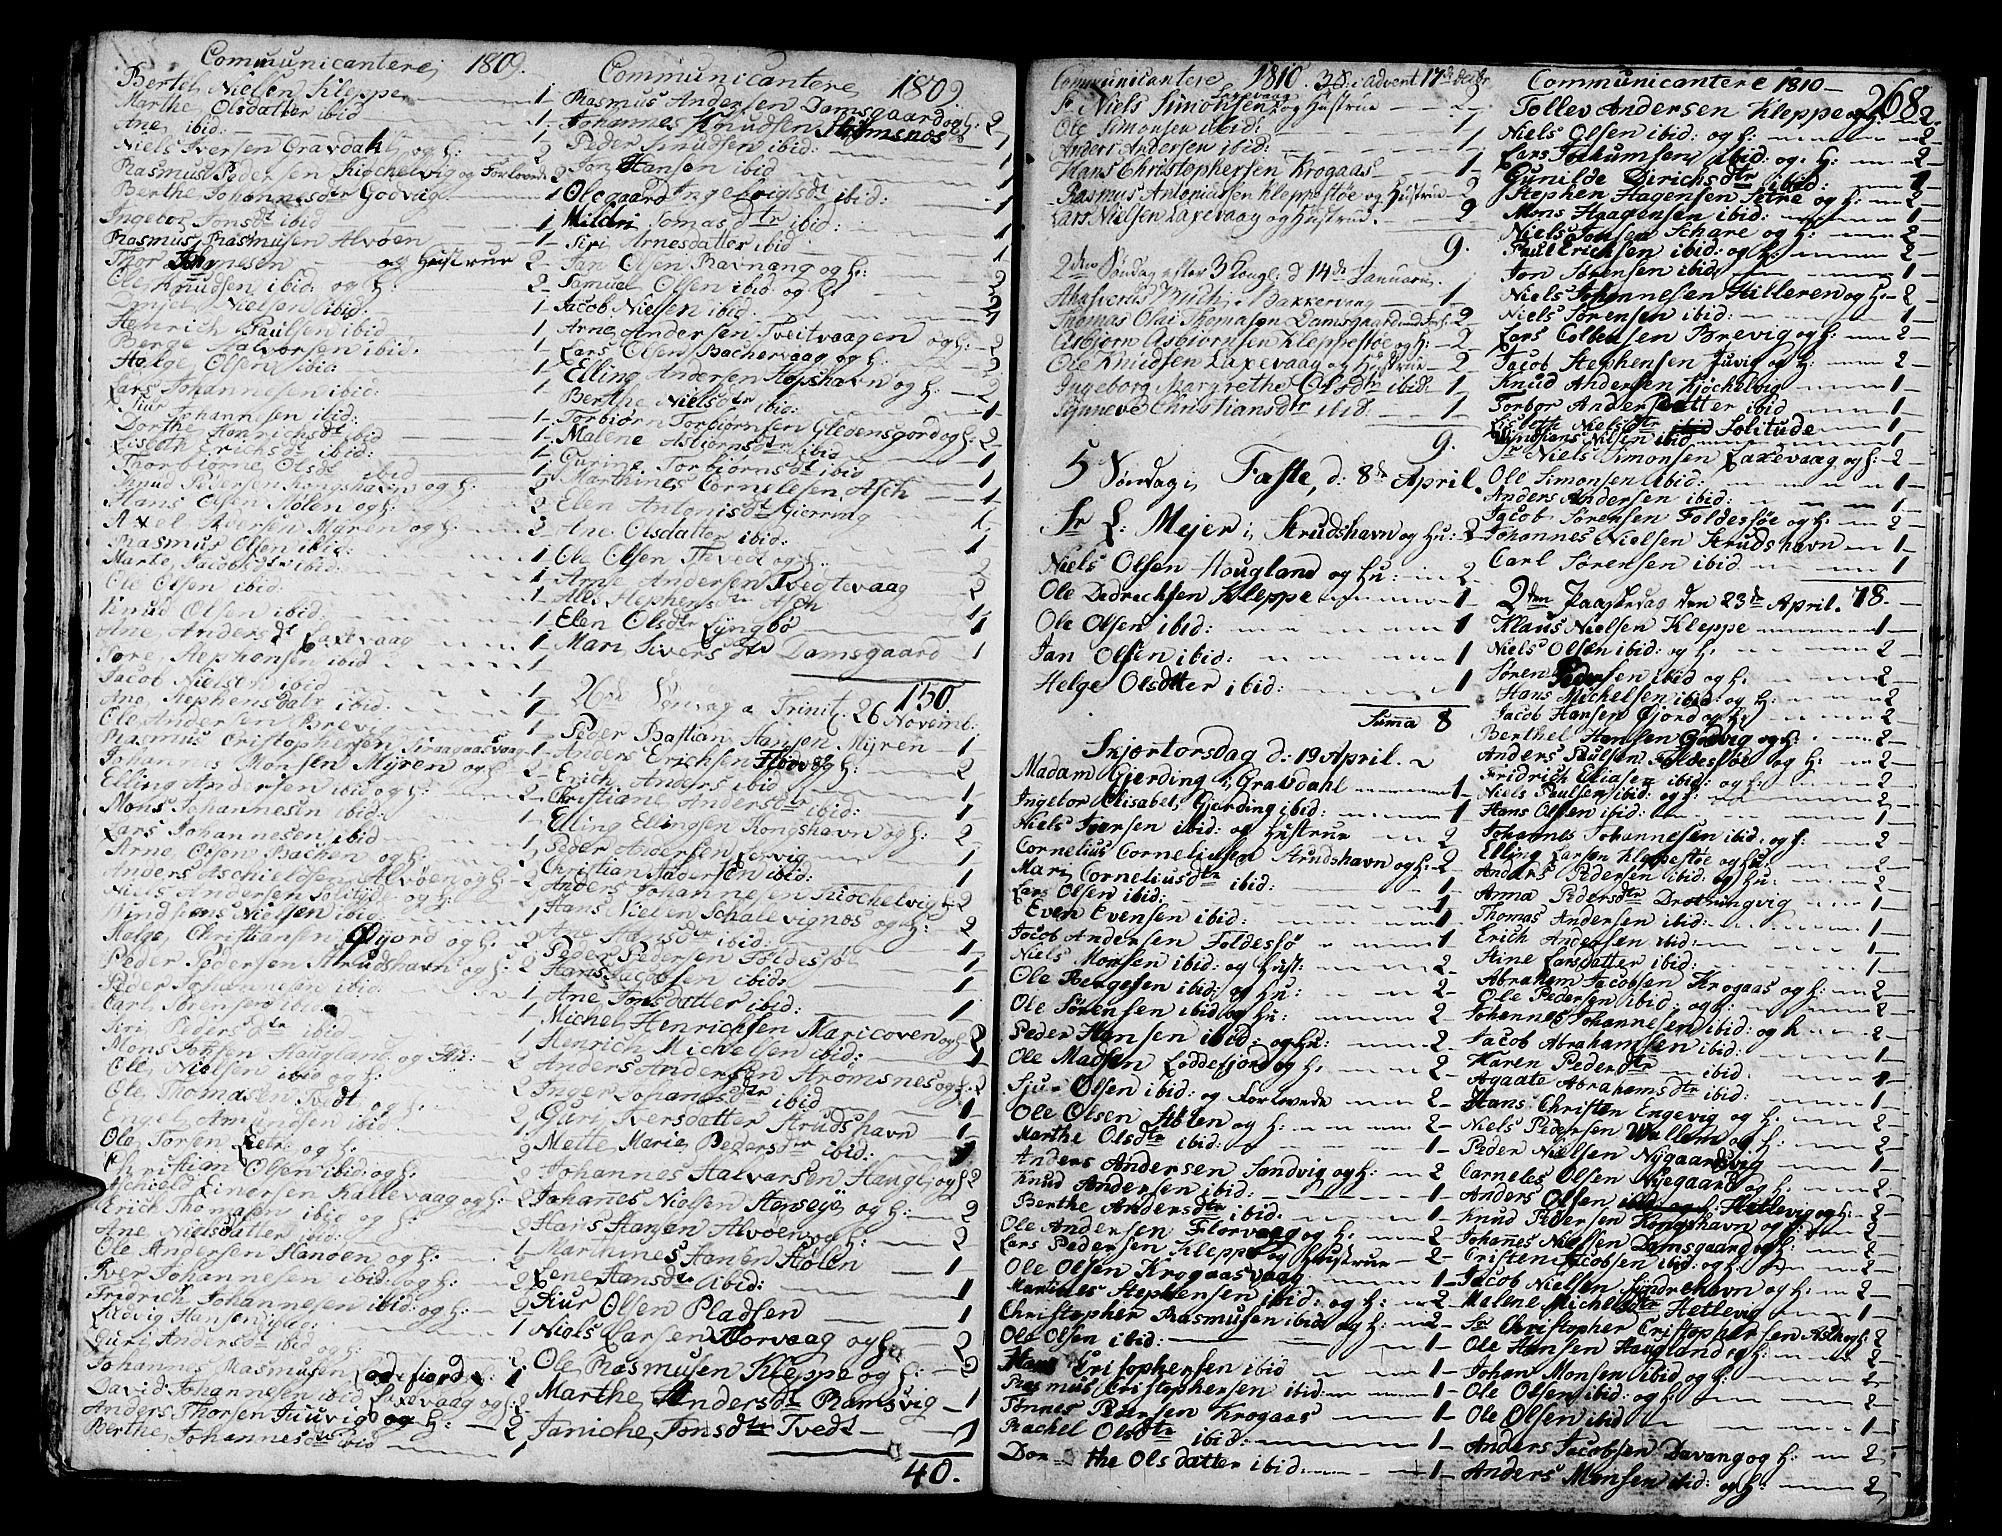 Communicantere 1809.
Bertel Nielsen Kleppe 1
Marthe Olsdatter ibid 1
Ane ibid: 1
Niels Iversen Gravdahl og H: 2
Rasmus Pedersen Kiøchelvig og Forlovede 2
Berthe Johannesdr Godvig 1
Ingebor Jonsdt ibid 1
Rasmus Rasmusen Alvøen 1
Thor og Hustrue 2
Ole Knudsen ibid: og H: 2
Nielsen ibid: 1
Henrich Paulsen ibid 1
Berge Halvorsen ibid: 1
Helge Olsen ibid: 1
Lars Johannesen ibid: 1
Johannsen ibid: 1
Dorthe Henrichsdt ibid 1
Lisbeth Erichsdt ibid: 1
Thorbiørne Olsdt ibid 1
Knud Iversen Kongshavn og H: 2
Hans Olsen Holen og H: 2
Axel Iversen Muren og H: 2
Rasmus Olsen ibid: 1
Marte Jacobsdtr ibid: 1
Ole Olsen ibid: 1
Knud Olsen ibid: 1
Ane Andersdt Laxevaag 1
Tore Stephensen ibid 1
Jacob Nielsen ibid 1
Ane Stephensdatr ibid: 1
Ole Andersen Brevig 1
Rasmus Cristophersen 1
Johannes Monsen Myren og H: 2
Elling Andersen ibid og H: 2
Mons Johannesen ibid: 1
Lars Johannesen ibid 1
Arne Olsen Bachen og H: 2
Anders Aschieldsen Alvøen og H: 2
Niels Andersen Solitude og H: 2
Windsens Nielsen ibid 1
Helge Christiansen Øyjord og H: 2
Peder Pedersen Strudshavn og H: 2
Peder Johannesen ibid 1
Carl Sørensen ibid 1
Siri Pedersdtr ibid 1
Mons Haugland og Hu: 2
Ole Nielsen ibid og H: 2
Ole Thomasen Tvedt og H: 2
Engel Amundsen ibid 1
Ole og H: 2
Christian Olsen ibid: og H: 2
Aschield Einersen Kallevaag og H: 2
Erich Thomasen ibid og H: 2
Ane Nielsdatter ibid: 1
Ole Andersen Hanøen og H: 2
Iver Johannesen ibid: og H: 2
Fridrich Johannesen ibid: og H: 2
Ludvig Hansen 1
Guri Andersdtr ibid
Johannes Rasmusen
David Johannesen ibid Laxevaag og H: 2
Anders Thorsen Juuvig og H: 2
Berthe Johannesdtr ibid 1
Communicantere 1809.
Rasmus Andersen Damsgaard og H: 2
Johannes Knudsen 1
Peder Knudsen ibid: 1
Jon Hansen ibid 1
Olegaard Ingebrigtsdt ibid: 1
Mildri Tomasdtr ibid: 1
Siri Arnesdatter ibid 1
Jan Olsen Ravnang og H: 2
Samuel Olsen ibid og H: 2
Jacob Nielsen ibid: 1
Arne Andersen Tveitvaagen og H: 2
Lars Olsen Bachervaag og H: 2
Elling Andersen Hopshavn og H: 2
Berthe Nielsdtr ibid: 1
Torbiørn Torbiørnsen og H: 2
Malene Asbiørnsdtr ibid 1
Gurine Torbiørnsdt ibid 1
Marthines Cornelesen Asch 1
Elen Antonisdt Gierring 1
Ane Olsdatter ibid: 1
Ole Olsen Thvedt og H: 2
Arne Andersen Tvedtevaag 2
Stephensdtr Asch 1
Elen Olsdtr Lyngbø 1
Mari Siversdtr Damsgaard 1
150
26de Søndag a Trinit. 26 Novemb:
Peder Bastian Hansen Myren 1
Anders Erichsen og H: 2
Erich Anders ibid 1
Christiane Andersdtr ibid: 1
Elling Ellingsen Kongshavn og H: 2
Peder Andersen 1
Christian Andersen ibid: 1
Anders Johannesen Kiøchelvig 2
Hans Nielsen Schalevignæs og H: 2
Ane Hansdtr ibid: 1
Peder Pedersen Foldesøe 1
Hans Jacobsen ibid: 1
Ane Jonsdatter ibid: 1
Michel Henrichsen Maricoven og H: 2
Henrich Michelsen ibid: 1
Anders Andersen Strømsnes og H: 2
Inger Johanesdtr ibid 1
Guri Iversdatter Strudshavn 1
Mette Marie Pedersdtr ibid: 1
Johannes Halvorsen Haugl: og H: 2
Johanes Nielsen og H: 2
Hans Hansen Alvøen og H: 2
Marthines Hansen Holen 1
Lene Hansdtr ibid: 1
Siur Olsen Pladsen 1
Niels Larsen Florvaag og H: 2
Ole Rasmusen Kleppe og H: 2
Marthe Andersdtr Ramsvig 1
Janiche Jonsdtr Tvedt 1
40.
Communicantere 1810. 3 S: i Advent 17de Decbr
Sr Niels Simonsen Laxevaag og Hustrue 2
Ole Simonsen ibid: 1
Anders Andersen ibid: 1
Hans Christophersen Krogaas 1
Rasmus Antoniussen Kleppestøe og Hustrue 2
Lars Nielsen Laxevaag og Hustrue 2
9.
2den Søndag efter 3 Kongl: d 14de Januarii
Ahasverus Bakkervaag 1
Thomas Olai Thomasen Damsgaard 2
Asbiørn Asbiørnsen Kleppestøe og H: 2
Ole Knudsen Laxevaag og Hustrue 2
Ingeborg Margrethe Olsdtr ibid: 1
Synneve Christiansdtr ibid: 1
9.
5 Søndag i Faste, d: 8de April.
Sr L: Mejer i Strudshavn og Hu: 2
Niels Olsen Hougland og Hu: 2
Ole Dedrichsen Kleppe 1
Ole Olsen ibid: 1
Jan Olsen ibid: 1
Helge Olsdatter ibid: 1
Suma 8
Skjertorsdag d: 19 April.
Madam Gjerding i Gravdahl 1
Ingebor Elisabet Gjerding ibid: 1
Niels Iversen ibid: og Hustrue 2
Cornelius Corneliusen Strudshavn og H: 2
Mari Corneliusdtr ibid: 1
Lars Olsen ibid: 1
Even Evensen ibid: 1
Jacob Andersen Foldessø 1
Niels Monsen ibid: og Hust: 2
Ole Bergesen ibid: og Hu: 2
Ole Sørensen ibid og Hu: 2
Peder Hansen ibid: og Hu: 2
Ole Madsen Loddefjord og H: 2
Sjur Olsen ibid: og Forlovede 2
Ole Olsen Holen og H: 2
Marthe Olsdtr ibid: 1
Anders Andersen Sandvig og H: 2
Knud Andersen ibid: 1
Berthe Andersdtr ibid: 1
Ole Andersen Florvaag og H: 2
Lars Pedersen Kleppe og Hustrue 2
Ole Olsen Krogaasvaag 1
Martines Stephensen ibid: og H: 2
Christopher Rasmusen ibid og H: 2
Ole Olsen ibid: 1
Hans Cristophersen ibid 1
Rasmus Cristophersen ibid: 1
Tønnes Pedersen Krogaas 1
Rachel Olsdtr ibid: 1
Dorthe Olsdatter ibid: 1
Communicantere 1810
268
Tollev Andersen Kleppe og H: 2
Niels Olsen ibid: og H: 2
Lars ibid: og H: 2
Gunilde Dirichsdtr ibid: 1
Stephen Hagensen Setre og H: 2
Mons Haagensen ibid: 1
Niels Jonsen Schare og H: 2
Paul Erichsen ibid: og H: 2
Jon Sørensen ibid: 1
Niels Johannesen Hilleren og H: 2
Niels Sørensen ibid: 1
Lars Colbensen Brevig og H: 2
Jacob Stephensen Juvig og H: 2
Knud Andersen Kjøchelvig 1
Torbor Andersdatter ibid 1
Lisbeth Nielsdtr Solitude 1
Windsens Nielsen ibid 1
Sr Niels Simonsen Laxevaag og H: 2
Ole Simonsen ibid: 1
Anders Andersen ibid: 1
Jacob Sørensen Foldessøe og H: 2
Johannes Nielsen Strudshavn 1
Carl Sørensen ibid 1
78.
2den Paaskedag den 23de April.
Klaus Nielsen Kleppe 1
Niels Olsen ibid: og H: 2
Søren Pedersen ibid og H: 2
Hans Michelsen ibid og H: 2
Jacob Hansen Øjord og H: 2
Berthel Hansen Godvig og H: 2
Anders Paulsen Foldesløe og H: 2
Fridrich Eliasen ibid: og H: 2
Niels Paulsen ibid: og H: 2
Hans Olsen ibid: 1
Johannes Johannesen ibid: og H: 2
Elling Larsen Kleppestøe og Hu: 2
Anders Pedersen ibid: og Hu: 2
Anna Pedersdtr Drotningvig 1
Thomas Andersen ibid: 1
Erich Andersen ibid: 1
Stine Larsdatter ibid: 1
Abrahem Jacobsen Krogaas og H: 2
Ole Pedersen ibid: og H: 2
Johannes Johannesen ibid: og H 2
Jacob Abrahamsen ibid: 1
Karen Pedersdtr ibid: 1
Agaate Abrahamsdtr ibid: 1
Hans Christen Engevig og H: 2
Niels Pedersen Wallem og H: 2
Peder Nielsen Nygaardsvig 1
Carneles Olsen Nyegaard og H: 2
Anders Olsen Hettevig og H: 2
Knud Pedersen Kongshavn og H: 2
Johanes Nielsen Damsgaard og H: 2
Cristen Jacobsen ibid: og H: 2
Jacob Nielsen 1
Malene Michelsdtr Hettevig 1
Sr Christopher Cristophersen Ask og H: 2
Ole Hansen Haugland og H: 2
Johan Monsen ibid og H: 2
Ole Olsen ibid: og H: 2
Ole Olsen ibid 1
Anders Jacobsen Davang og H: 2
Anders Monsen ibid: og H: 2